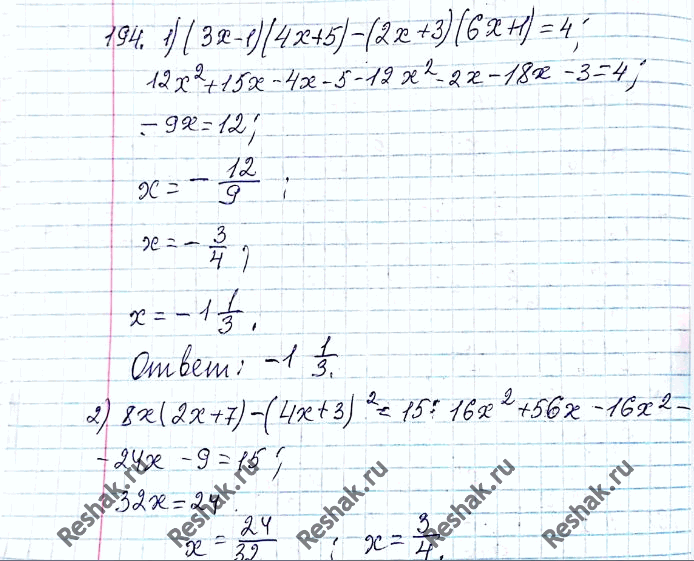 194. 1) (3x-1)(4x+5)-(2x+3)(6x+1)=4;
12x²+15x-4x-5-12x²-2x-18x-3=4;
-9x=12;
x=-12/9;
x=-3/4;
x=-1 1/3.
Ответ: -1 1/3.
2) 8x(2x+7)-(4x+3)²=15: 16x²+56x-16x²-
-24x-9=15;
32x=24.
x=24/32; x=3/4.
Reshak.ru Reshak.ru Reshak.ru Reshak.ru